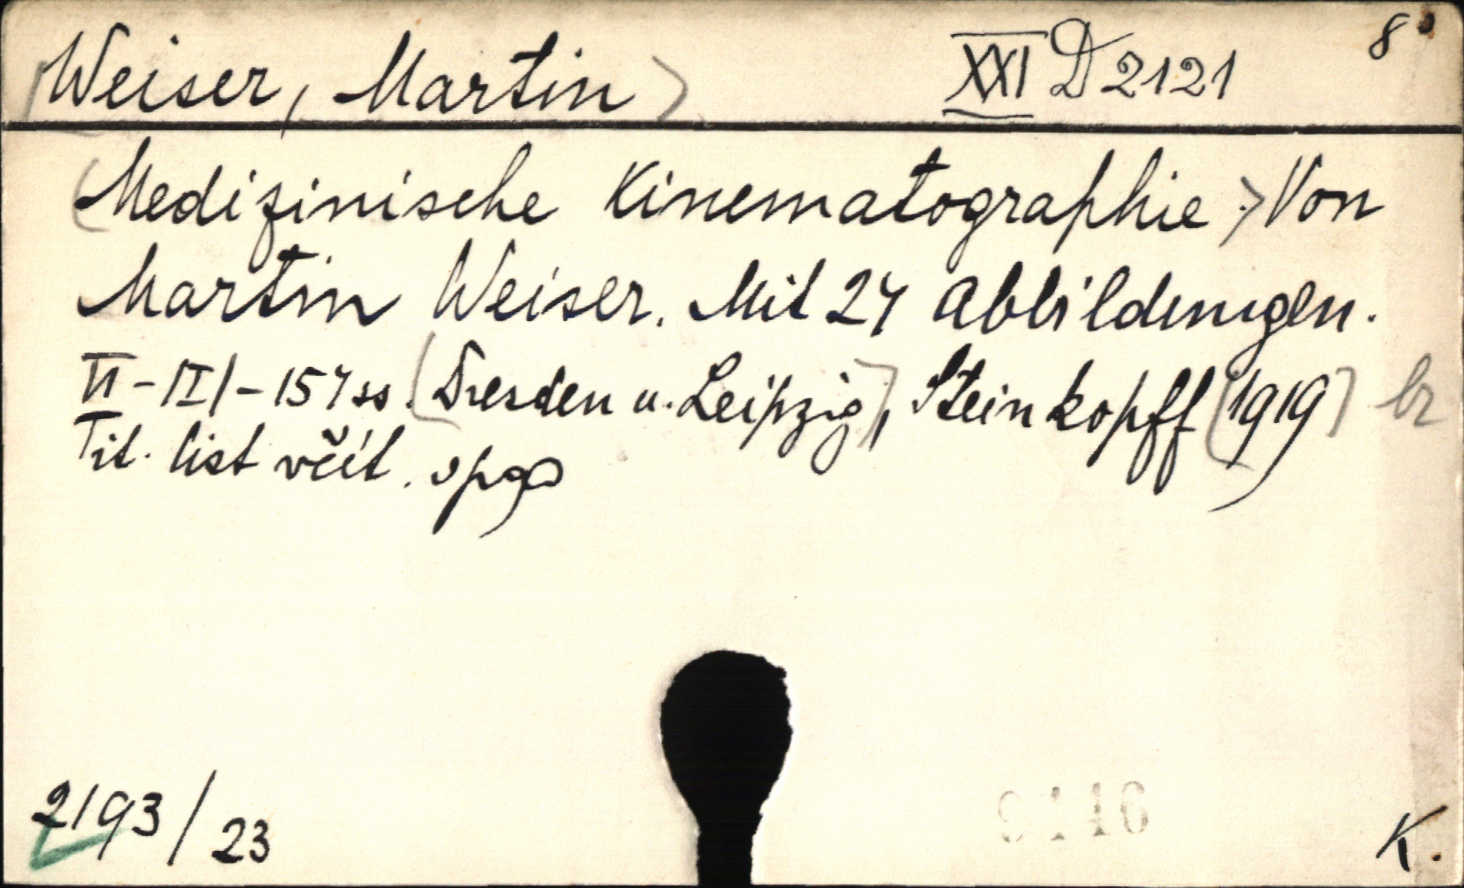 Weiser, Martin XXI D 2121 8°
Medizinische Kinematographie. Von
Martin Weiser. Mit 27 Abbildungen.
VI - 157 ss. Dresden u. Leipzig, Steinkopff 1919 br
Tit. list včít.
2193/23
9146
K.